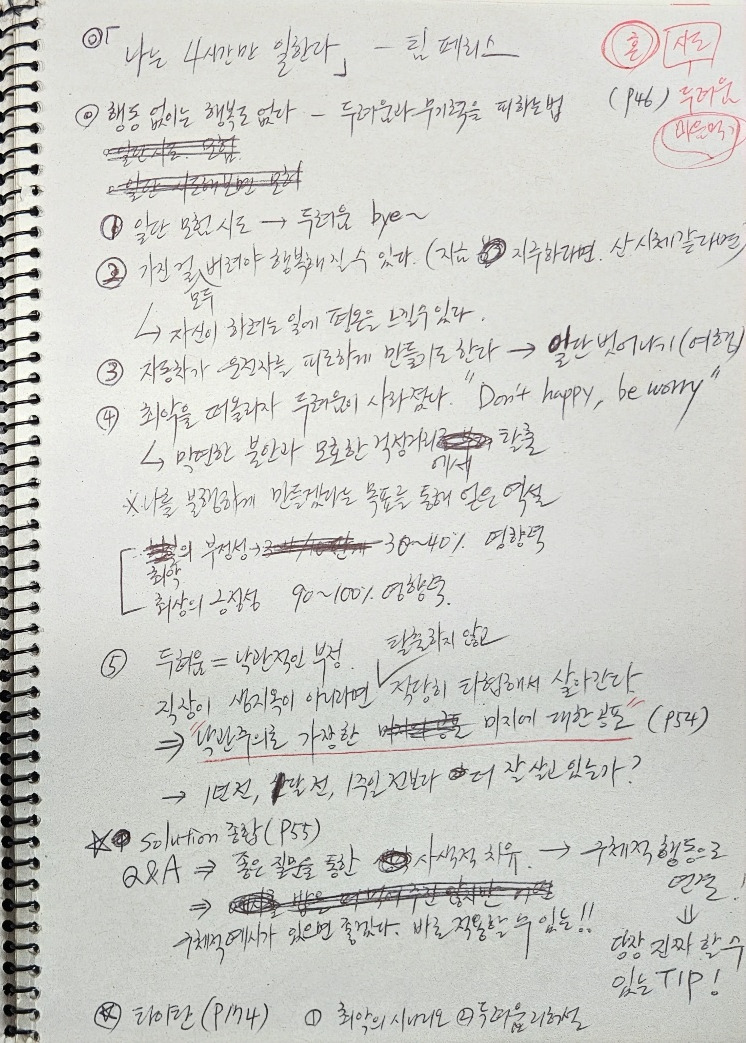 ◎「나는 4시간만 일한다」 - 팀 페리스
훈 시도
◎ 행동 없이는 행복도 없다 - 두려움과 무기력을 피하는법 (P46) 두려움
마음먹기
일단 시도. 모험
① 일단 모험 시도 → 두려움 bye~
② 가진 걸 모두 버려야 행복해질 수 있다. (지금 지루하다면. 산 시체 같다면)
↳ 자신이 하려는 일에 평온을 느낄수 있다.
③ 자동차가 운전자를 피로하게 만들기도 한다 → 일단 벗어나기 (여행)
④ 최악을 떠올리자 두려움이 사라졌다. "Don't happy, be worry"
↳ 막연한 불안과 모호한 걱정거리에서 탈출
※ 나를 불행하게 만들겠다는 목표를 통해 얻은 역설
최악의 부정성 → 30~40% 영향력
최상의 긍정성 90~100% 영향력.
⑤ 두려움 = 낙관적인 부정.
직장이 생지옥이 아니라면 탈출하지 않고 적당히 타협해서 살아간다
⇒ "낙관주의로 가장한 미지에 대한 공포" (P54)
→ 1년전, 1달 전, 1주일 전보다 더 잘 살고 있는가?
☆ solution 종합 (P55)
Q&A ⇒ 좋은 질문을 통한 사색적 치유. → 구체적 행동으로 연결!
⇒
구체적 예시가 있으면 좋겠다. 바로 적용할 수 있는!!
⇓
당장 진짜 할 수
있는 TIP!
☆ 타이탄 (P174) ① 최악의 시나리오 ② 두려움 리허설